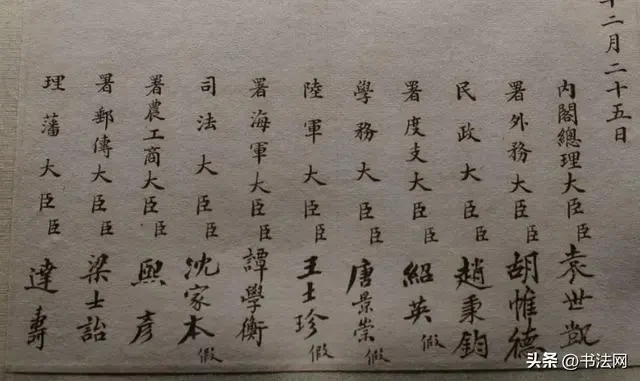 十二月二十五日
內閣總理大臣臣袁世凱
署外務大臣臣胡惟德
民政大臣臣趙秉鈞
署度支大臣臣紹英假
學務大臣臣唐景崇假
陸軍大臣臣王士珍假
署海軍大臣臣譚學衡
司法大臣臣沈家本假
署農工商大臣臣熙彥
署郵傳大臣臣梁士詒
理藩大臣臣達壽
头条 @书法网